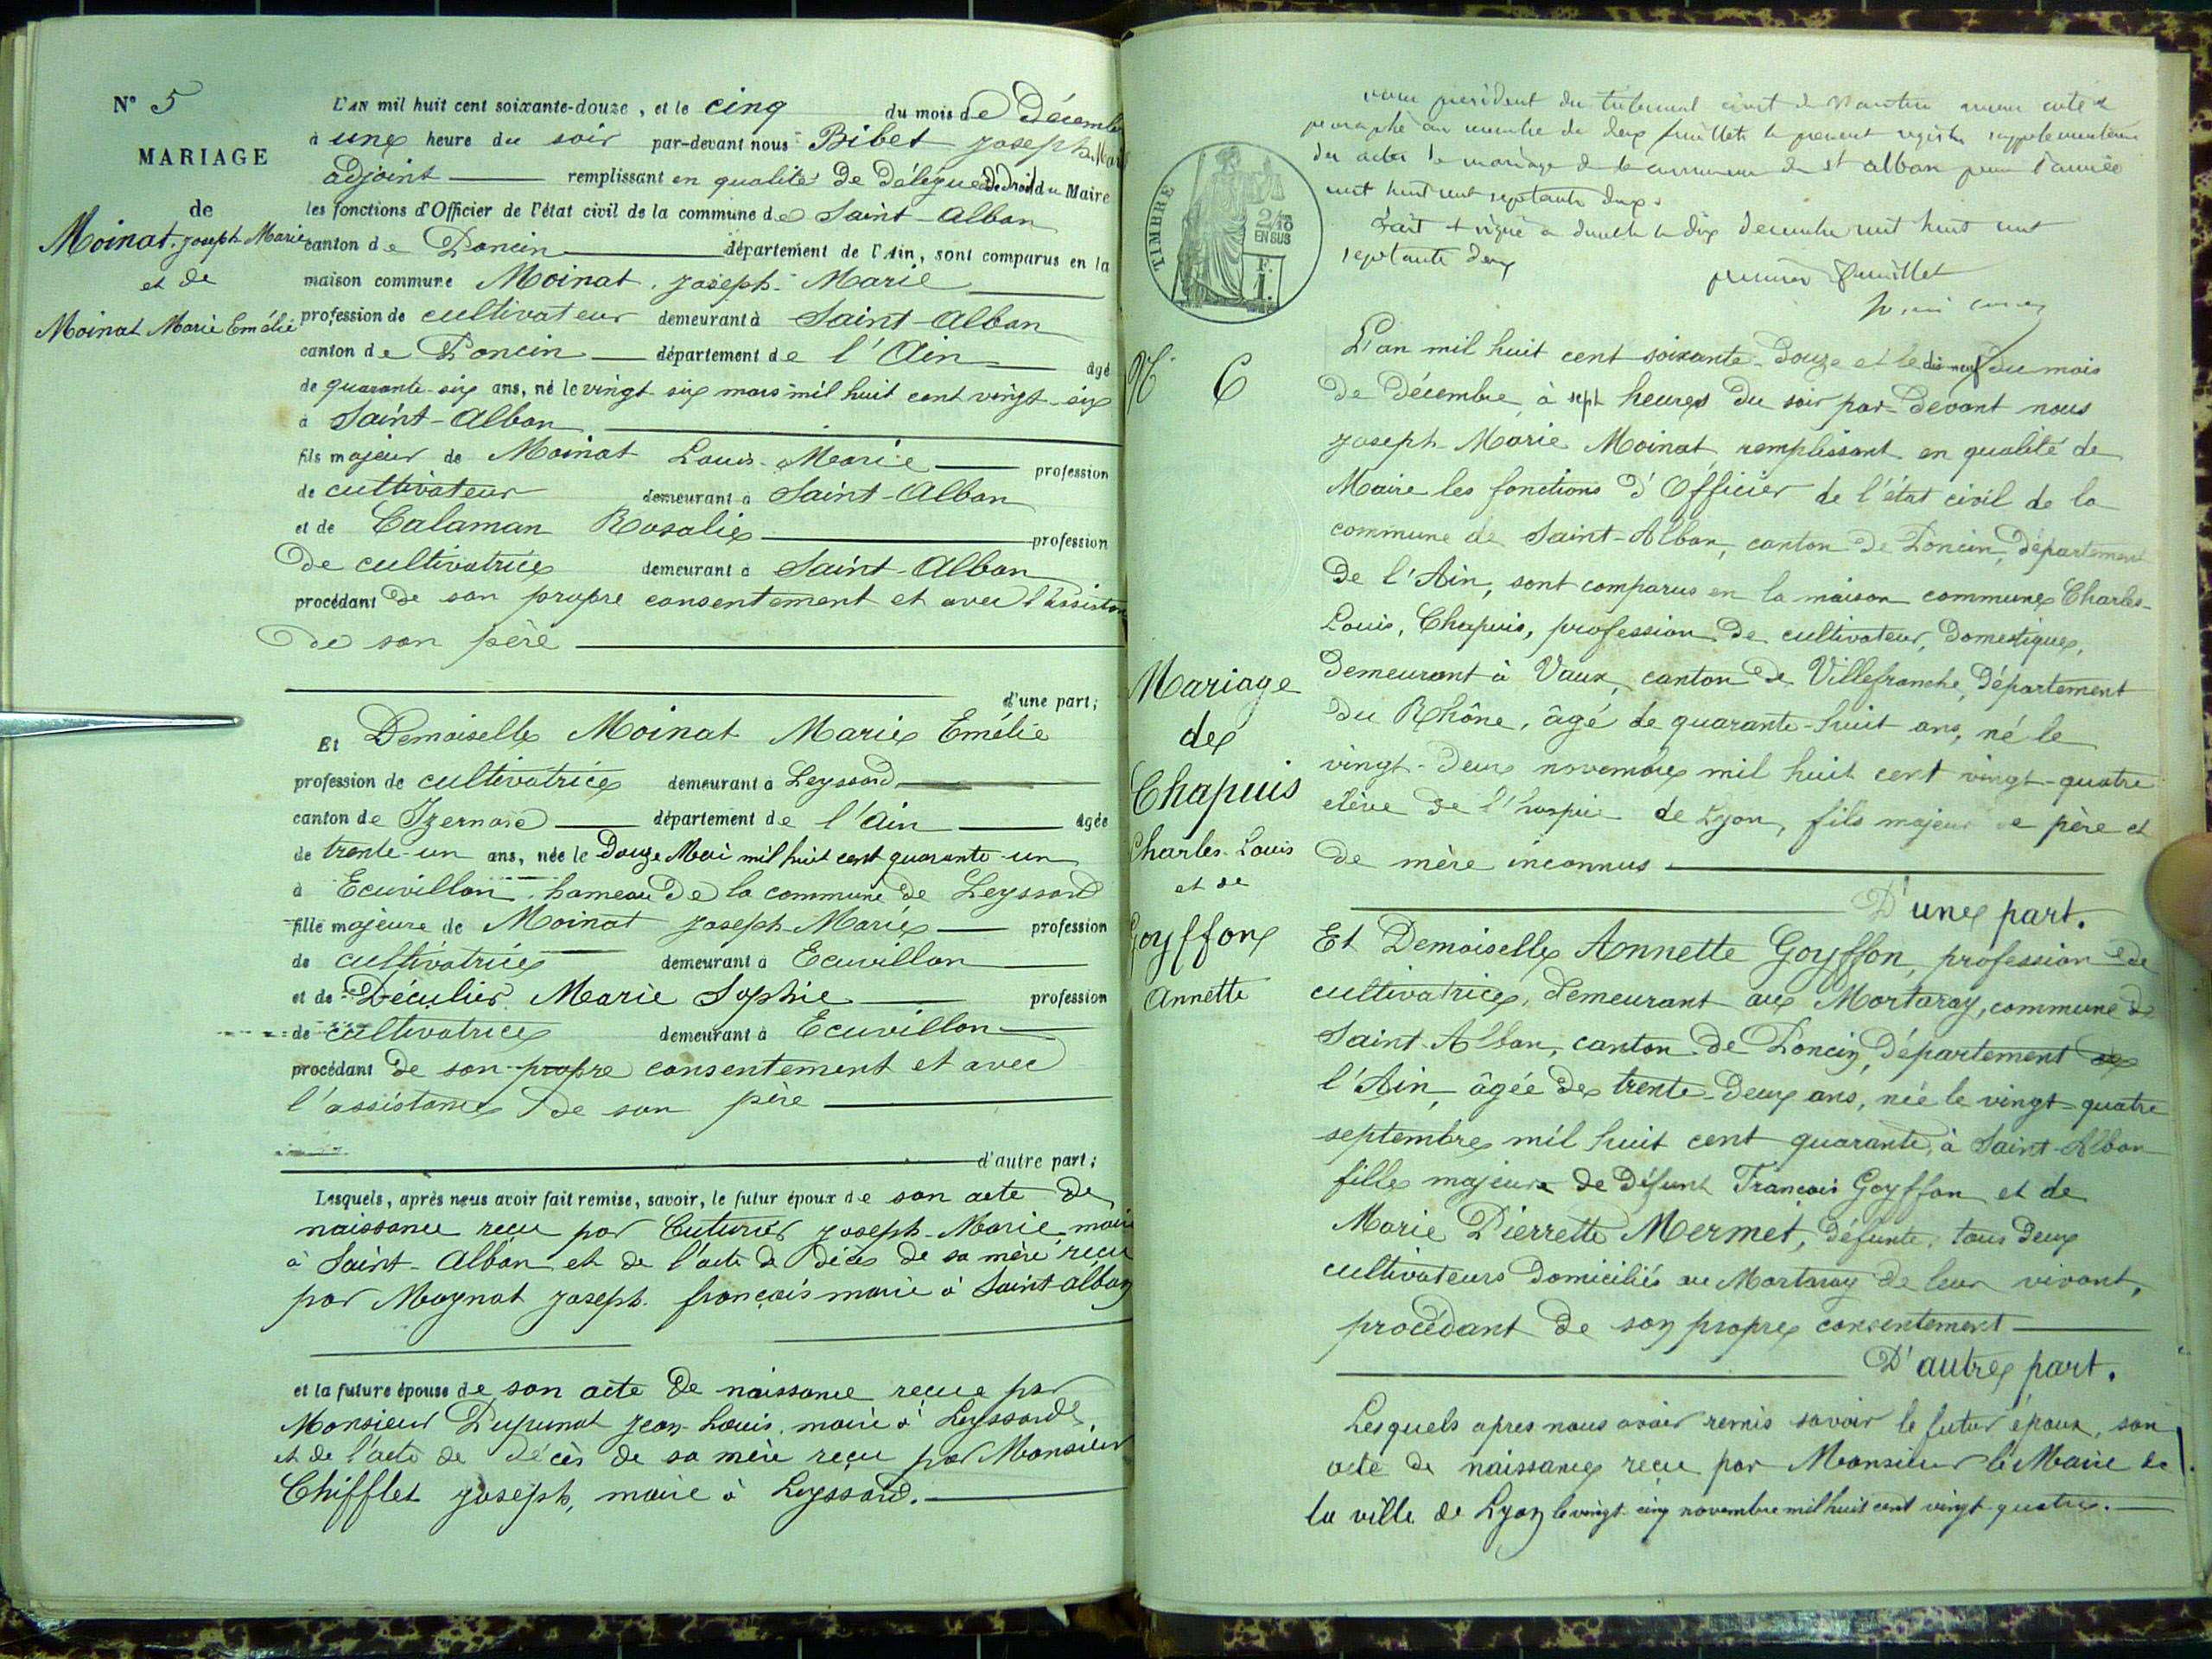 N° 5
MARIAGE
de
Moinat Joseph Marie
et de
Moinat Marie Emélie
L'AN mil huit cent soixante-douze, et le cinq du mois de Décembre
à une heure du soir par-devant nous Bibet Joseph Marie
adjoint remplissant en qualité de Délégué de droit du Maire
les fonctions d'Officier de l'état civil de la commune de Saint-Alban
canton de Poncin département de l'Ain, sont comparus en la
maison commune Moinat Joseph-Marie
profession de cultivateur demeurant à Saint-Alban
canton de Poncin département de l'Ain âgé
de quarante-six ans, né le vingt six mars mil huit cent vingt-six
à Saint-Alban
fils majeur de Moinat Louis-Marie profession
de cultivateur demeurant à Saint-Alban
et de Calaman Rosalie profession
de cultivatrice demeurant à Saint-Alban
procédant de son propre consentement et avec l'assistance
de son père
d'une part;
Et Demoiselle Moinat Marie Emélie
profession de cultivatrice demeurant à Leyssard
canton de Izernore département de l'Ain âgée
de trente-un ans, née le Douze Mai mil huit cent quarante-un
à Ecuvillon, hameau de la commune de Leyssard
fille majeure de Moinat Joseph-Marie profession
de cultivatrice demeurant à Ecuvillon
et de Déculier Marie Sophie profession
de cultivatrice demeurant à Ecuvillon
procédant de son propre consentement et avec
l'assistance de son père
d'autre part;
Lesquels, après nous avoir fait remise, savoir, le futur époux de son acte de
naissance reçu par Cuturier Joseph-Marie, maire
à Saint-Alban et de l'acte de décès de sa mère reçu
par Moynat Joseph François maire à Saint-Alban
et la future épouse de son acte de naissance reçue par
Monsieur Dupunat Jean-Louis, maire à Leyssard,
et de l'acte de décès de sa mère reçu par Monsieur
Chifflet Joseph, maire à Leyssard.
président du tribunal civil de Nantua avons coté &
paraphé au nombre de deux feuillets le présent registre supplémentaire
des actes de mariage de la commune de st alban pour l'année
mil huit cent septante deux.
Fait & signé à le dix décembre mil huit cent
septante deux
premier feuillet
TIMBRE
2/10
EN SUS
F.
1.
N° 6
Mariage
de
Chapuis
Charles-Louis
et de
Goyffon
Annette
L'an mil huit cent soixante-Douze et le dix-neuf du mois
de Décembre, à sept heures du soir par-devant nous
Joseph-Marie Moinat, remplissant en qualité de
Maire les fonctions d'Officier de l'état civil de la
commune de Saint-Alban, canton de Poncin, département
de l'Ain, sont comparus en la maison commune Charles-
Louis, Chapuis, profession de cultivateur, domestique,
demeurant à Vaux, canton de Villefranche, département
du Rhône, âgé de quarante-huit ans, né le
vingt-deux novembre mil huit cent vingt-quatre
elève de l'hospice de Lyon, fils majeur de père et
de mère inconnus
D'une part.
Et Demoiselle Annette Goyffon, profession de
cultivatrice, demeurant au Mortaray, commune de
Saint-Alban, canton de Poncin, Département de
l'Ain, âgée de trente-deux ans, née le vingt-quatre
septembre mil huit cent quarante, à Saint-Alban
fille majeure de défunt François Goyffon et de
Marie Pierrette Mermet, défunte, tous deux
cultivateurs domiciliés au Mortaray de leur vivant,
procédant de son propre consentement
D'autre part.
Lesquels apres nous avoir remis savoir le futur époux, son
acte de naissance reçu par Monsieur le Maire de
la ville de Lyon le vingt-cinq novembre mil huit cent vingt-quatre.